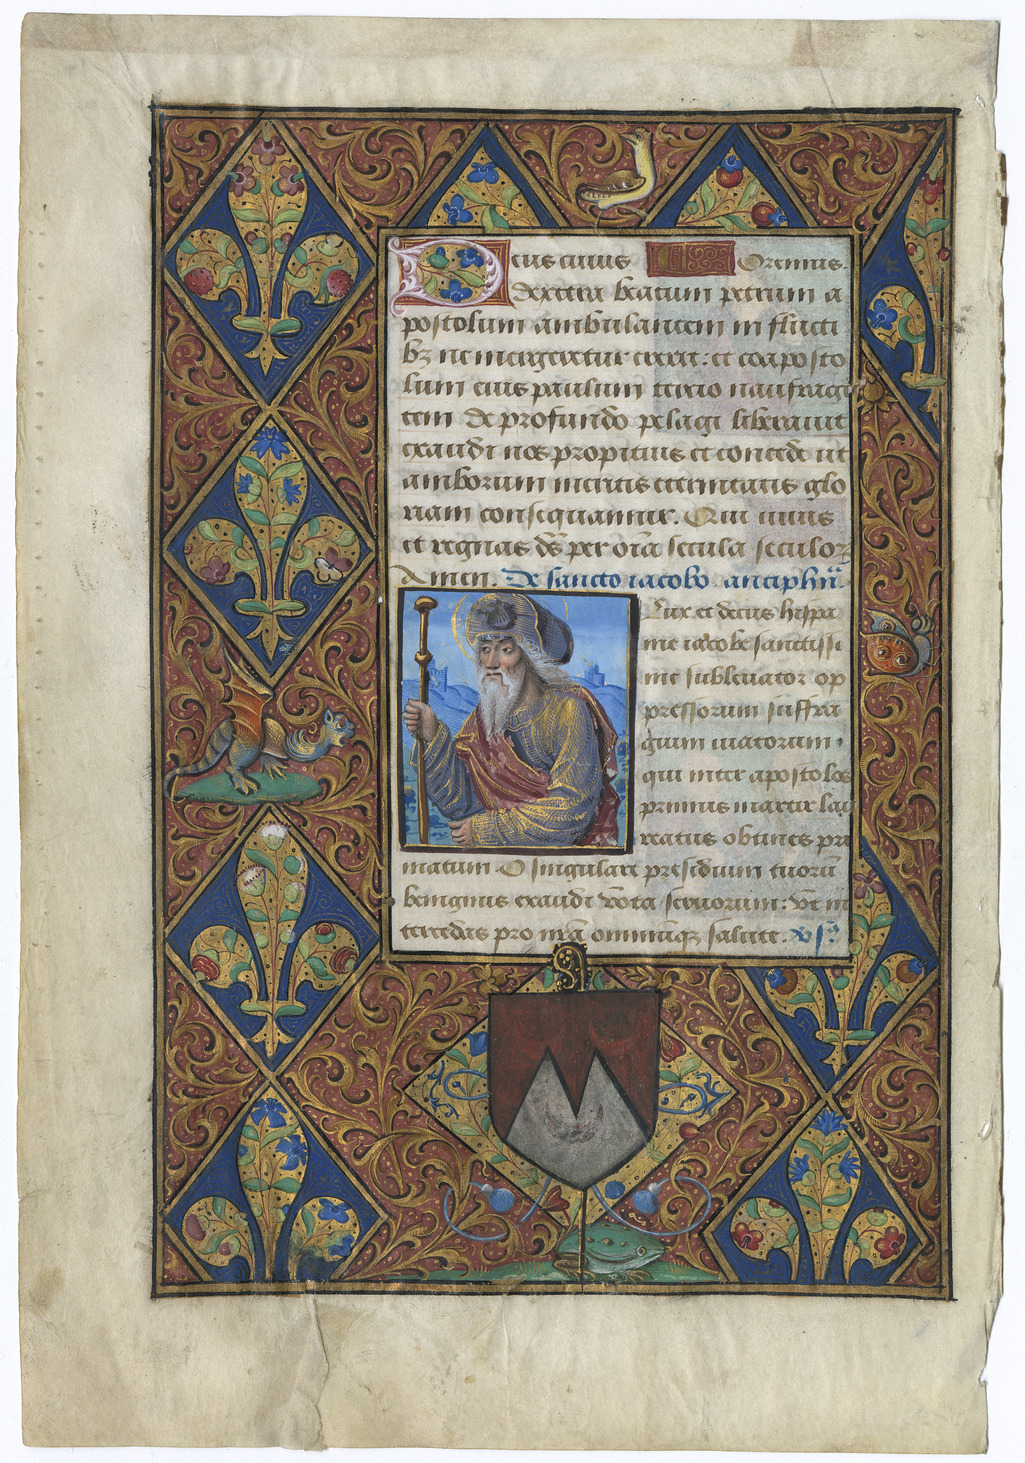 Deus cuius Oremus.
dextera beatum petrum a
postolum ambulantem in flucti
bꝫ ne mergeretur erexit: et coaposto
lum eius paulum tercio naufragā
tem de profundo pelagi liberauit
exaudi nos propitius et concede ut
amborum meritis eternitatis glo
riam consequamur. Qui uiuis
et regnas ds̄ per oīa secula seculoꝝ
Amen. De sancto iacobo. antiphā.
Lux et decus hispa
nie iacobe sanctissi
me subleuator op
pressorum suffra
gium uiatorum.
qui inter apostolos
primus martir lau
reatus obtines pri
matum. O singulare presidium tuorū
benignus exaudi vōta seruorum: vt in
tercedas pro nrā omniūqꝫ salute. vs.